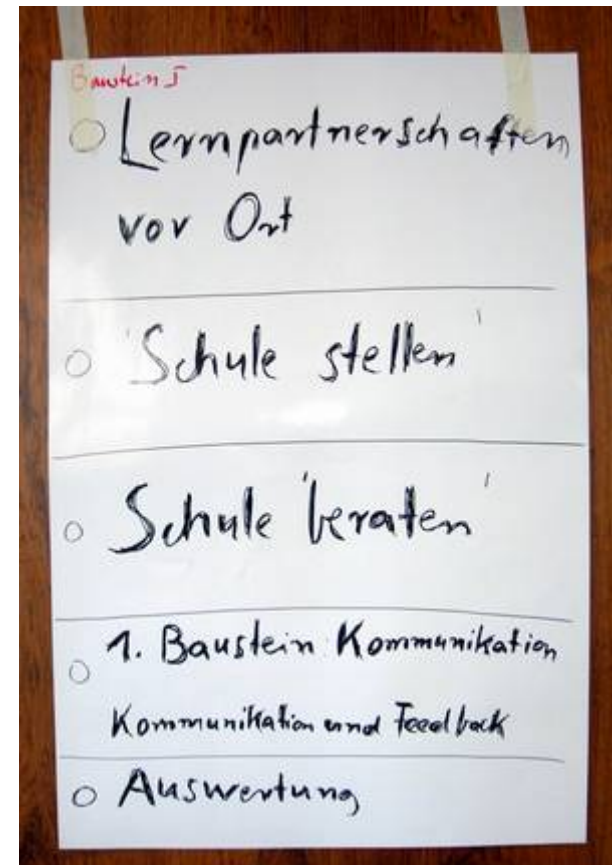 Baustein I
Lernpartnerschaften
vor Ort
'Schule stellen'
Schule 'beraten'
1. Baustein Kommunikation
Kommunikation und Feedback
Auswertung